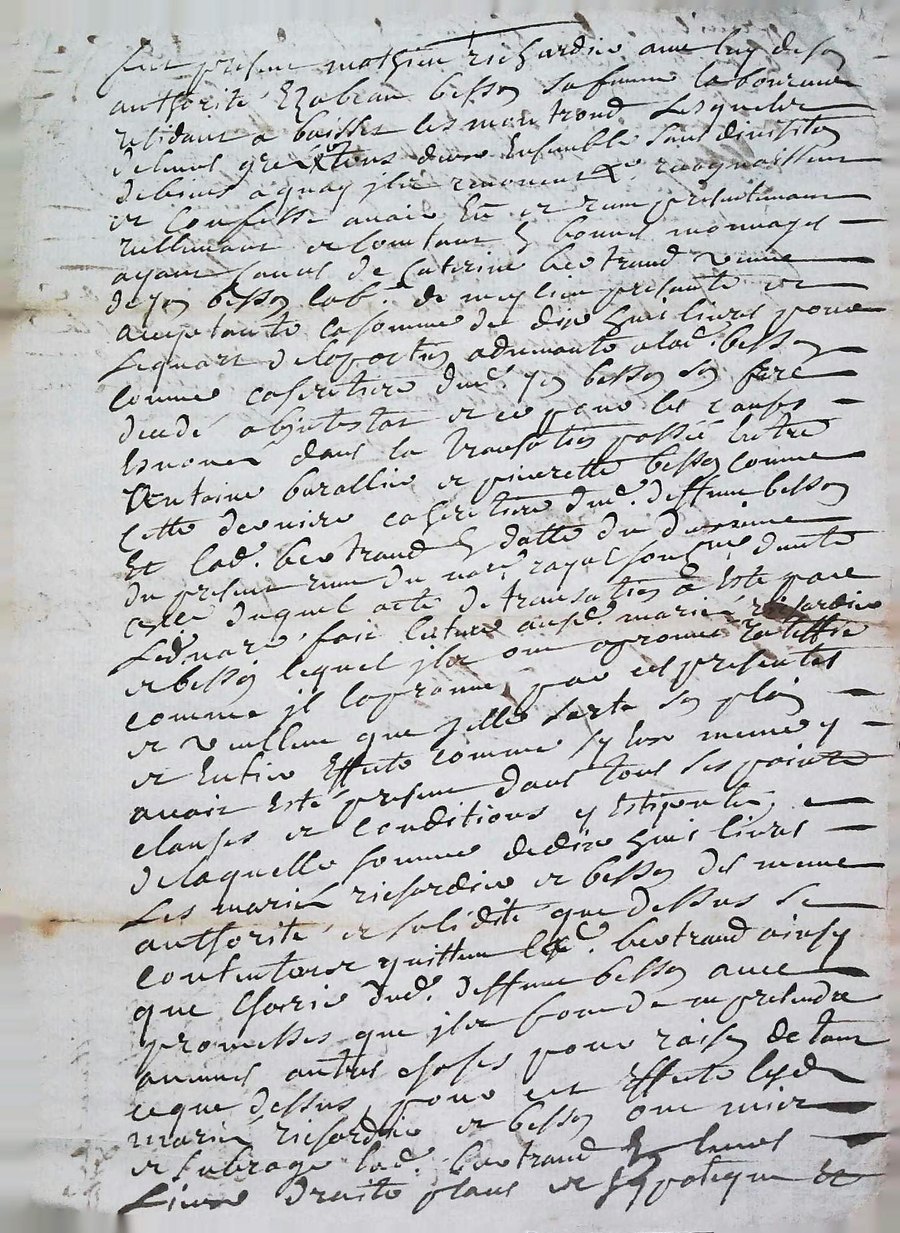 fut présent mathieu richardier avec luy de son
authorité Ezabeau besson sa femme laboureur
residant a boisset les montrond lesquels
de leurs gres tous deux Ensemble sans division
de biens a quoy ils renoncent recognoissent
et confesse avoir Eu et recu presentement
rellement et comtant En bonnes monnoyes
ayant cours de Caterine bertrand veuve
de jen besson lab.r de meylieu presante et
aceptante la somme de dix huit livres pour
le quart de la portion advenante a lad. besson
comme coheritiere dud. jen besson son frere
decedé abintestat et ce pour les causes
Enoncé dans la transaction passée Entre
Antoine barallier et pierrette besson comme
cette derniere coheritiere dud. deffunt besson
Et lad. bertrand En datte du
du present reçue du not.re royal soussigné dont
led. notaire fait lecture auxd. mariés richardier
et besson lequel ils ont aprouvé ratiffié
comme il laprouve par ces presentes
et veullent que jelle sorte son plain
et Entier Effects comme sy Eux meme y
avoir Esté present dans tous ses points
clauses et conditions y Estipulés,
de laquelle somme de dix huit livres
Les mariés richardier et besson des meme
authorité et solidité que dessus se
contentent quittent lad. bertrand ainsy
que lhoirie dud. deffunt besson avec
promesses que ils font de ne pretendre
aucunes autres choses pour raison de tout
ce que dessus, pour cet Effects lesd.
mariés richardier et besson ont mis
et subrogé lad. bertrand En leurs
Lieux droits place et hypoteque Et